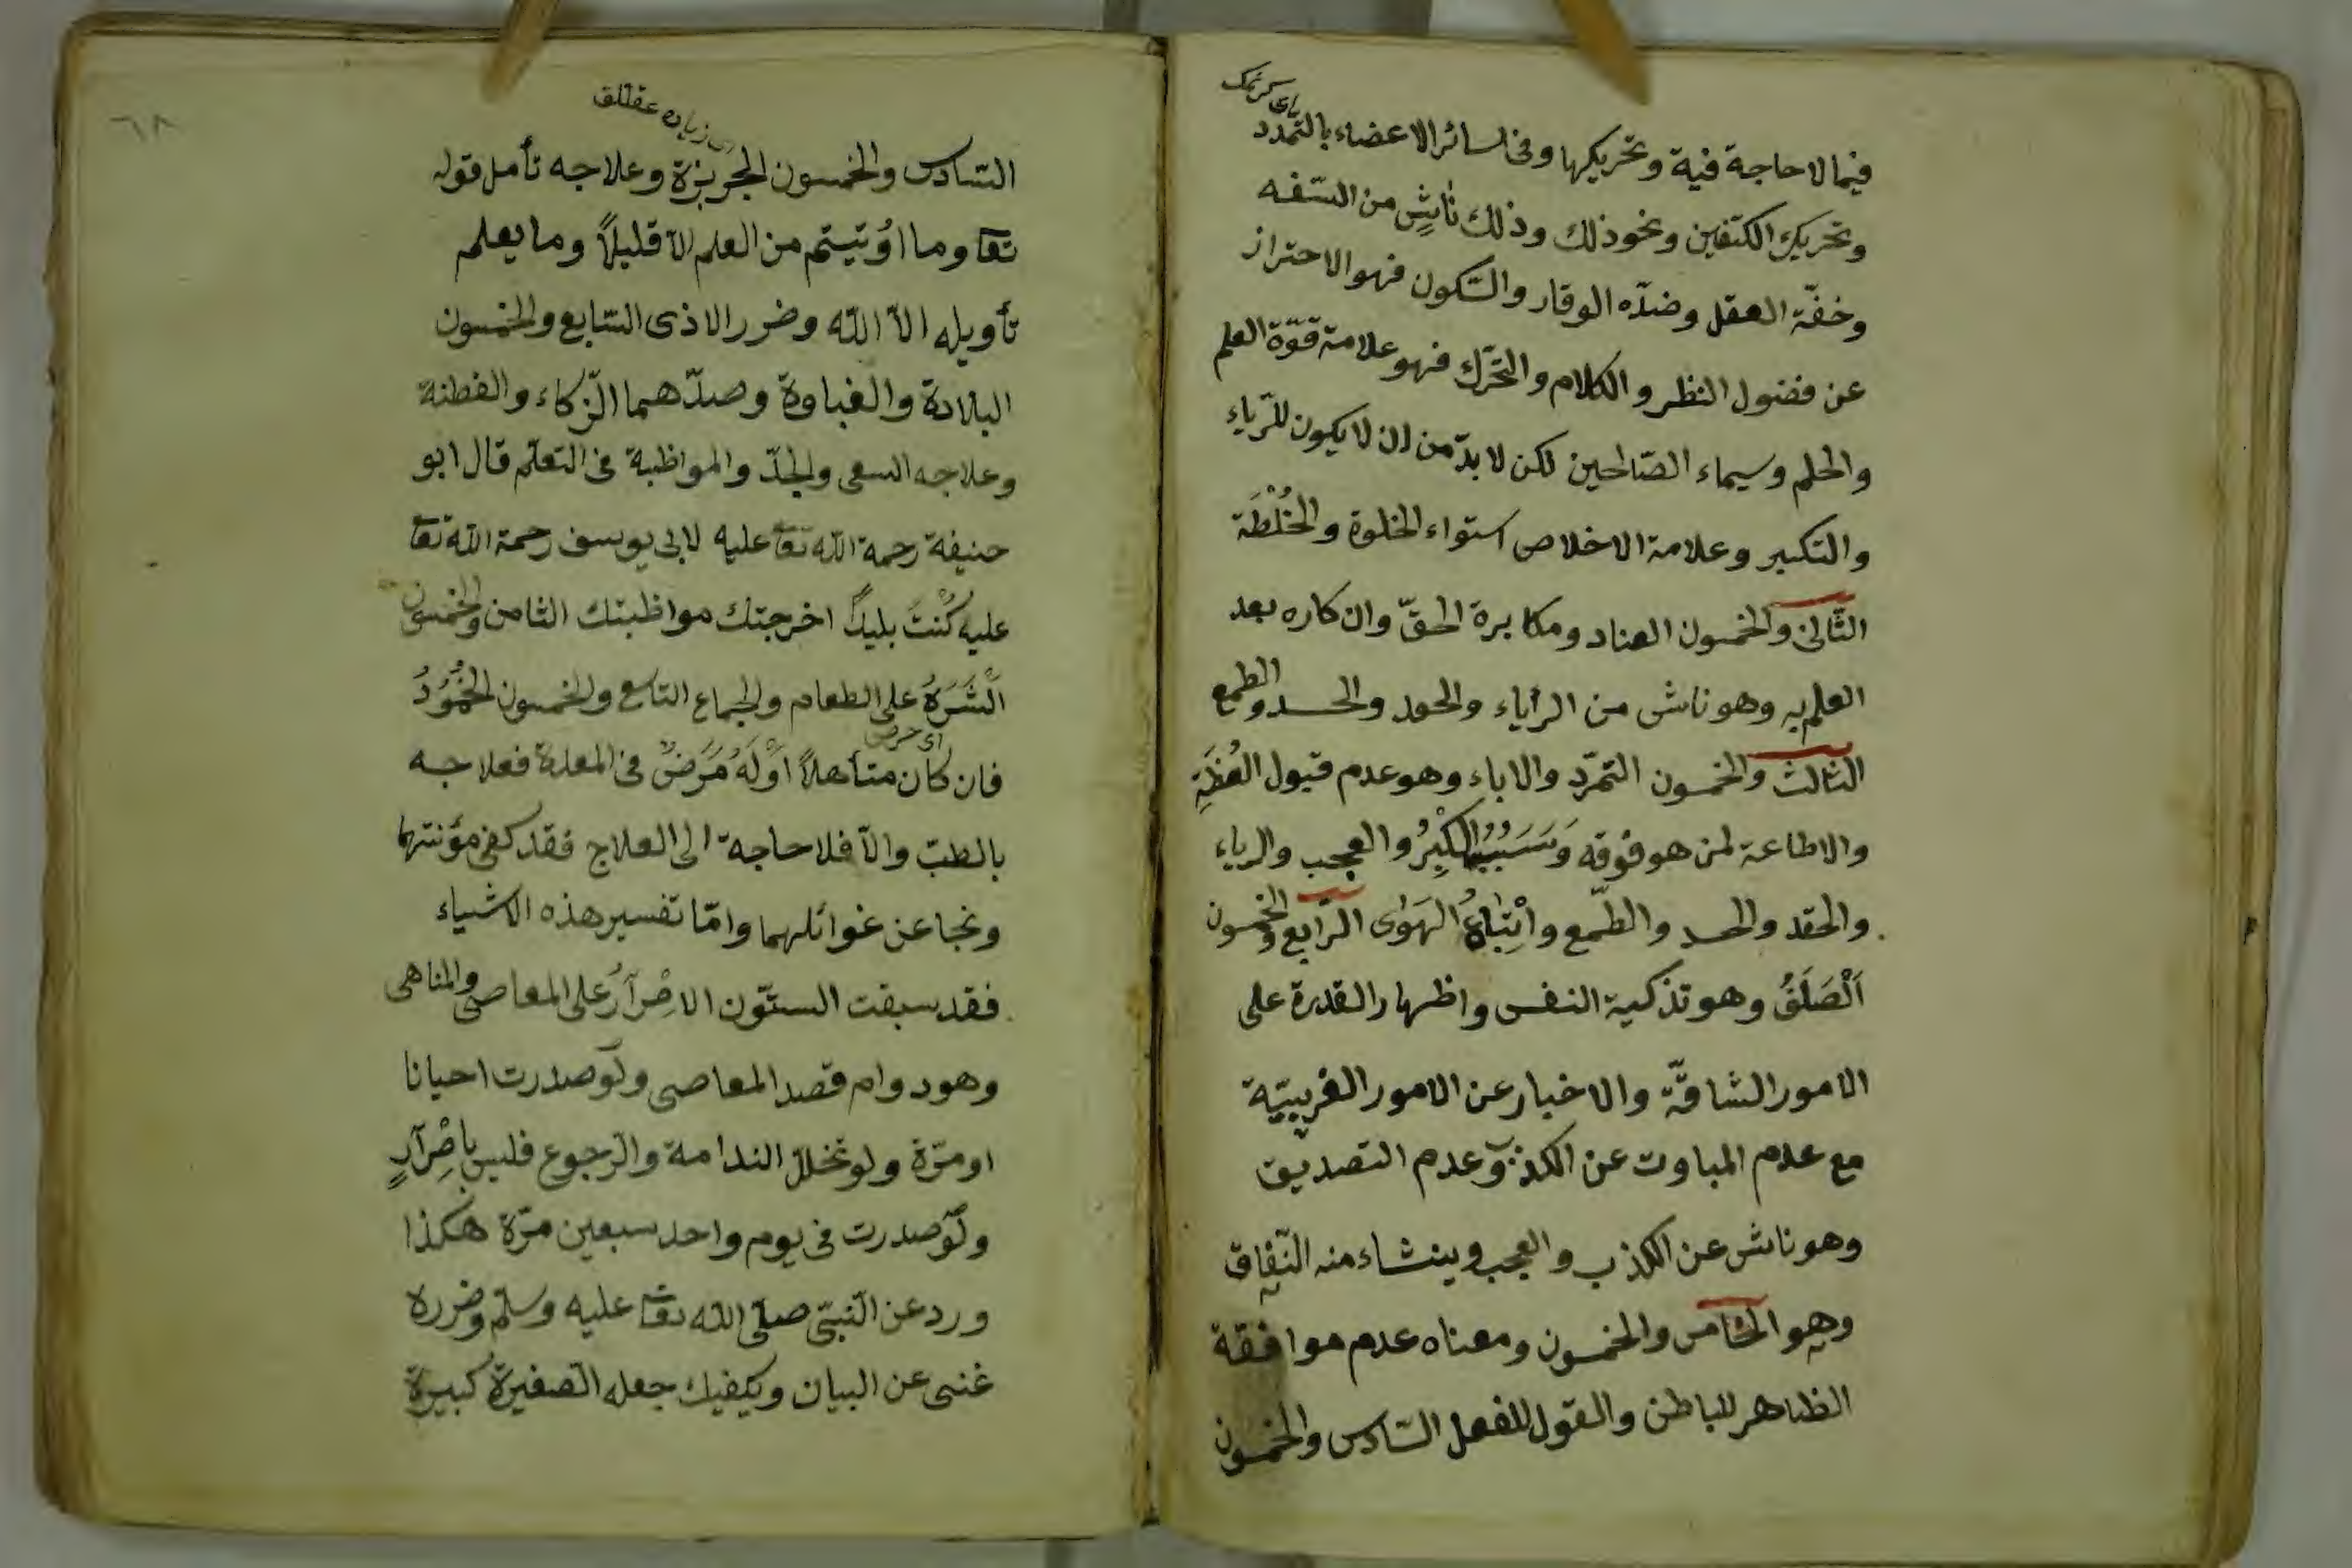 فيما لا حاجة فيه وتحريكها وفى سائر الاعضاء بالتمدّد
وتحريك الكتفين ونحو ذلك وذلك ناشٍ من السّفه
وخفّة العقل وضدّه الوقار والسّكون فهو الاحتراز
عن فضول النظر والكلام والتحرّك فهو علامة قوّة العلم
والحلم وسيماء الصّالحين لكن لا بدّ من ان لا يكون للرّياء
والتكبر وعلامة الاخلاص استواء الخلوة والخُلْطَة
الثّانى والخمسون العناد ومكابرة الحقّ وانكاره بعد
العلم به وهو ناش من الرأياء والحقد والحسد والطمع
الثالث والخمسون التمرّد والاباء وهو عدم قبول العُظَةِ
والاطاعة لمن هو فوقه وَسَبَبُهُ الْكِبْرُ والعجب والرياء
والحقد والحسد والطّمع واِتِّبَاعُ الهَوٰى الرّابع والخمسون
اَلْصَلَفُ وهو تذكية النفس واظهار القدرة على
الامور الشاقّة والاخبار عن الامور الغريبيّة
مع عدم المباوت عن الكذب وعدم التصديق
وهو ناش عن الكذب والعجب وينشاء منه النّفاق
وهو الخامس والخمسون ومعناه عدم موافقة
الظاهر للباطن والقول للفعل السّادس والخمسون
٦٨
زياده عقللق
السّادس والخمسون الجربزة وعلاجه تأمل قوله
تعا وما اوُتيتم من العلم الّا قليلاً وما يعلم
تأويله الّا اللّه وضرر الاذى السّابع والخمسون
البلادة والغباوة وضدّهما الزّكاء والفطنة
وعلاجه السعى والجدّ والمواظبة فى التعلّم قال ابو
حنيفة رحمة اللّه تعا عليه لابى يوسف رحمة اللّه تعا
عليه كُنْتَ بليدًا اخرجتك مواظبتك الثامن والخمسون
الْشَّرَهُ على الطعام والجماع التاسع والخمسون الخُمُودُ
اى حرص
فان كان متأهلاً اَوْلَهُ مَرَضٌ فى المعدة فعلاجه
بالطبّ والّا فلا حاجة الى العلاج فقد كفى مؤنتهما
ونجا عن غوائلهما وامّا تفسير هذه الاشياء
فقد سبقت الستّون الاصْرَآرُ على المعاصى والمناهى
وهو دوام قصد المعاصى ولَو صدرت احيانا
او مرّة ولو تخلل الندامة والرّجوع فليس بِاصْرَآرٍ
ولَو صدرت فى يوم واحد سبعين مرّة هكذا
ورد عن النّبىّ صلّى اللّه تعا عليه وسلّم وضرره
غنى عن البيان ويكفيك جعله الصّغيرة كبيرة